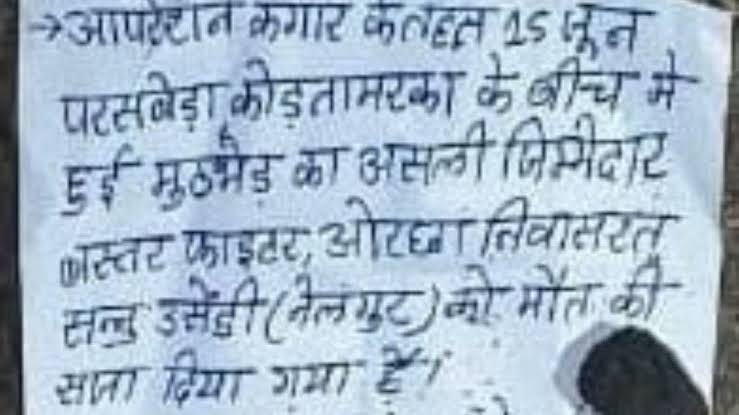 →आपरेशन कगार के तहत 15 जून
परसबेड़ा, कोड़तामरका के बीच में
हुई मुठभेड़ का असली जिम्मेदार
बस्तर फाइटर, ओरछा निवासरत
सन्नु उसेंडी (नेलगुट) को मौत की
सजा दिया गया है।